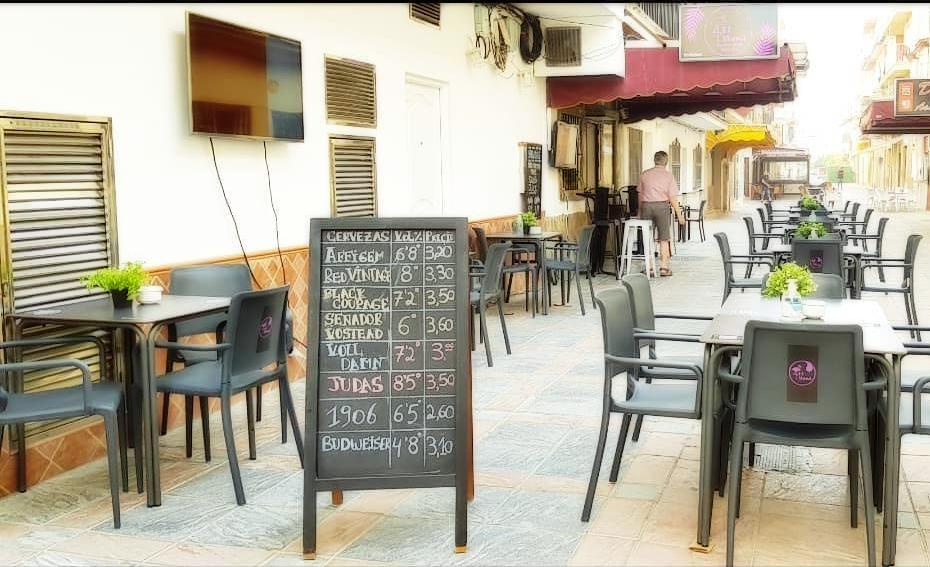 CERVEZAS VOL% PRECIO
AFFYGEM 6'8° 3,20
RED VINTAGE 8° 3,30
BLACK COUPAGE 7'2° 3,50
SENADOR VOSTEAD 6° 3,60
VOLL DAMN 7'2° 3,
JUDAS 8'5° 3,50
1906 6'5 2,60
BUDWEISER 4'8° 3,10